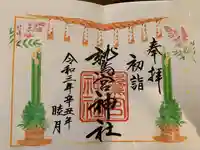 奉拝
初詣
鷲宮神社
令和三年辛丑年
睦月